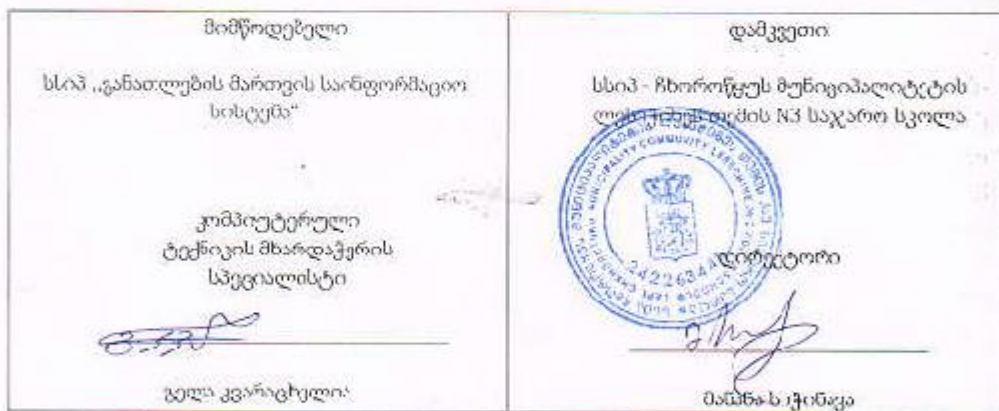 მიმწოდებელი
სსიპ ,,განათლების მართვის საინფორმაციო
სისტემა"
კომპიუტერული
ტექნიკის მხარდაჭერის
სპეციალისტი
გელა კვარაცხელია
დამკვეთი
სსიპ - ჩხოროწყუს მუნიციპალიტეტის
თემის N3 საჯარო სკოლა
დირექტორი